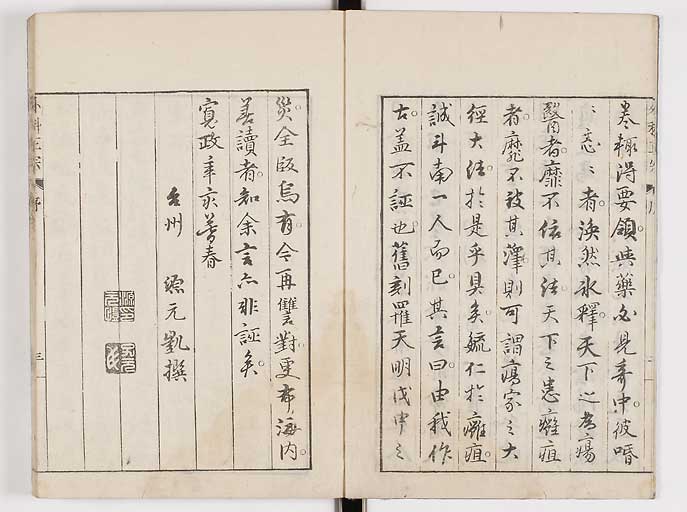 卷輙得要領與藥必見奔中彼唔
〻忘〻者渙然氷釋天下之為瘍
醫者靡不依其法天下之患癰疽
者靡不被其澤則可謂瘍家之大
經大法於是乎具矣毓仁於癰疽
誠斗南一人而已其言曰由我作
古蓋不誣也舊刻罹天明戊申之
災全版烏有今再讐對更布海内
善讀者知余言亦非誣矣
寛政辛亥暮春
台州 源元凱撰
外科正宗 序 三